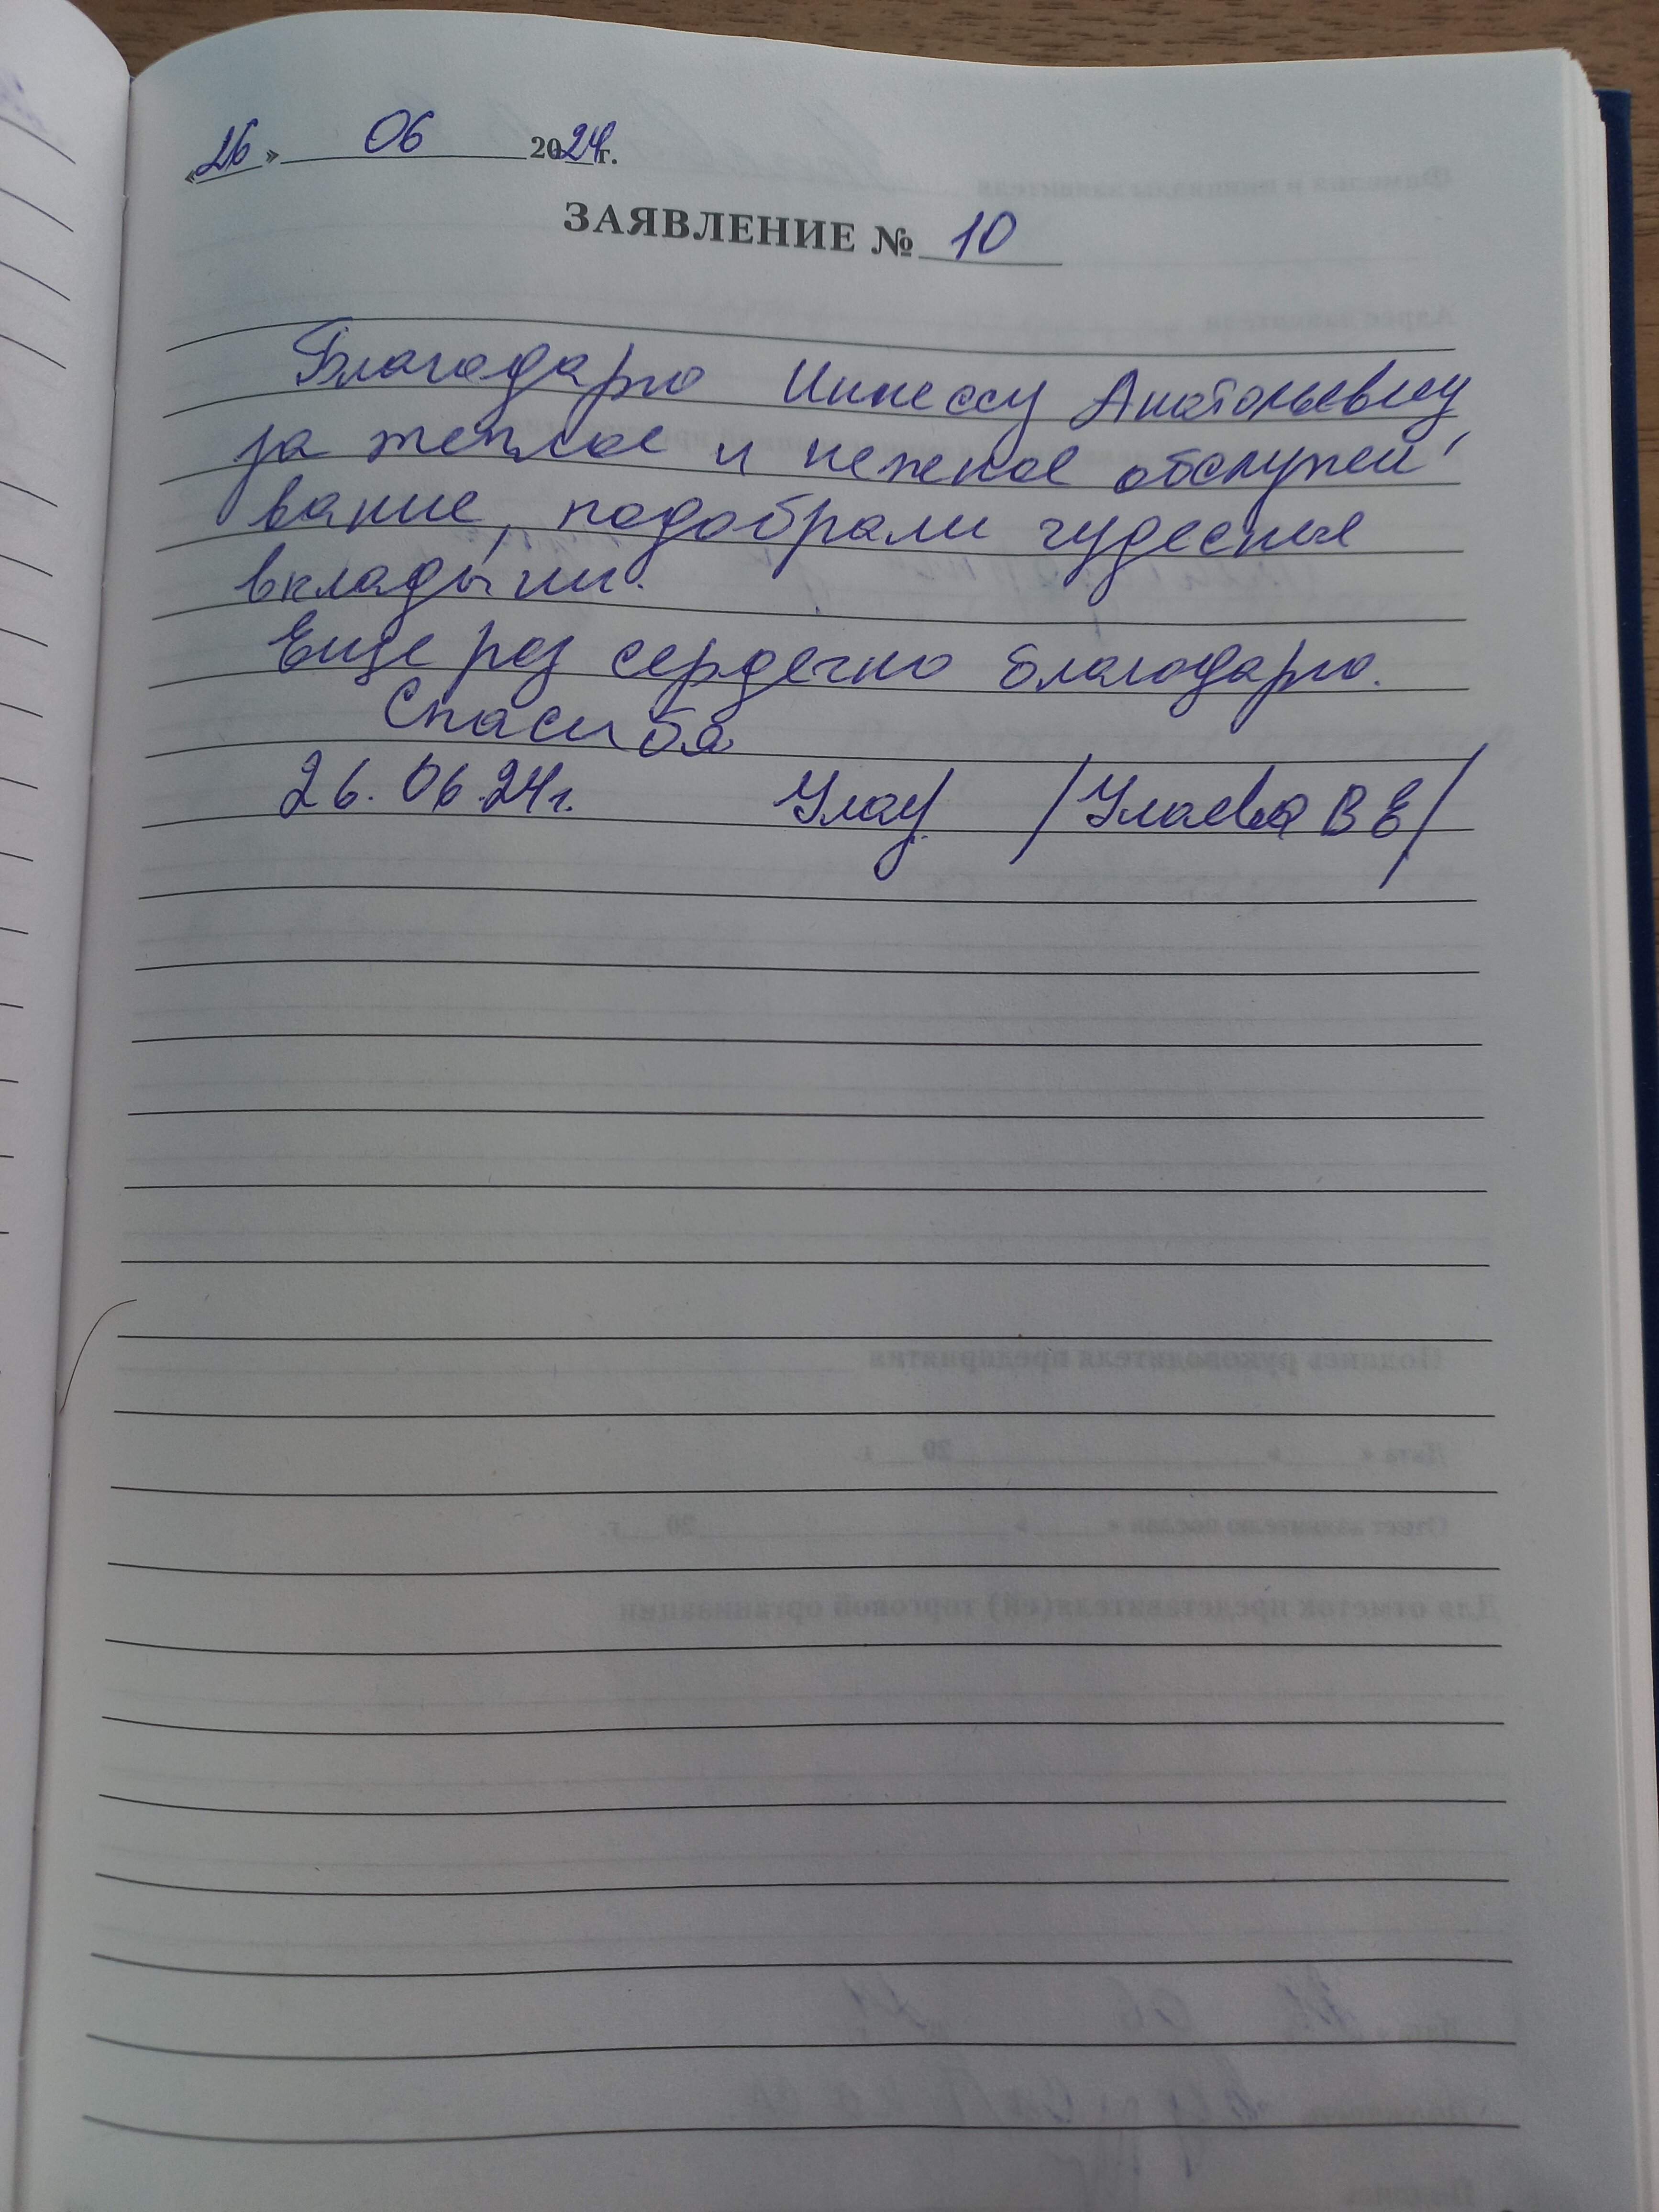 «26» 06 2024г.
ЗАЯВЛЕНИЕ № 10
Благодарю Иннессу Анатольевну
за теплое и нежное обслужи
вание, подобрали чудесные
вкладыши.
Еще раз сердечно благодарю.
Спасибо
26.06.24г. /В Е/